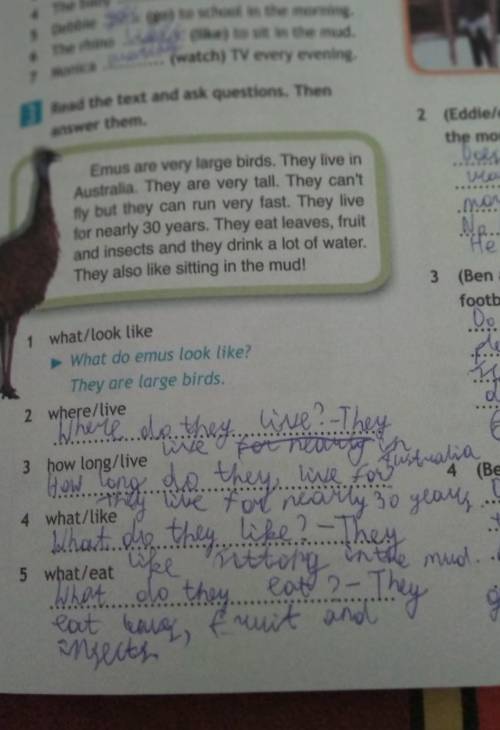 4 The baby
5 Debbie goes (go) to school in the morning.
6 The rhino likes (like) to sit in the mud.
7 Monica (watch) TV every evening.
3 Read the text and ask questions. Then
answer them.
Emus are very large birds. They live in
Australia. They are very tall. They can't
fly but they can run very fast. They live
for nearly 30 years. They eat leaves, fruit
and insects and they drink a lot of water.
They also like sitting in the mud!
1 what/look like
▶ What do emus look like?
They are large birds.
2 where/live
Where do they live? - They
live for nearly in
Australia
3 how long/live
How long do they, live for
They live for nearly 30 years
4 what/like
What do they like? - They
like sittong in the mud.
5 what/eat
What do they eat? - They
eat leaves, fruit and
insects
2 (Eddie/
the mo
Does
No
He
3 (Ben
footb
Do
4 (Be